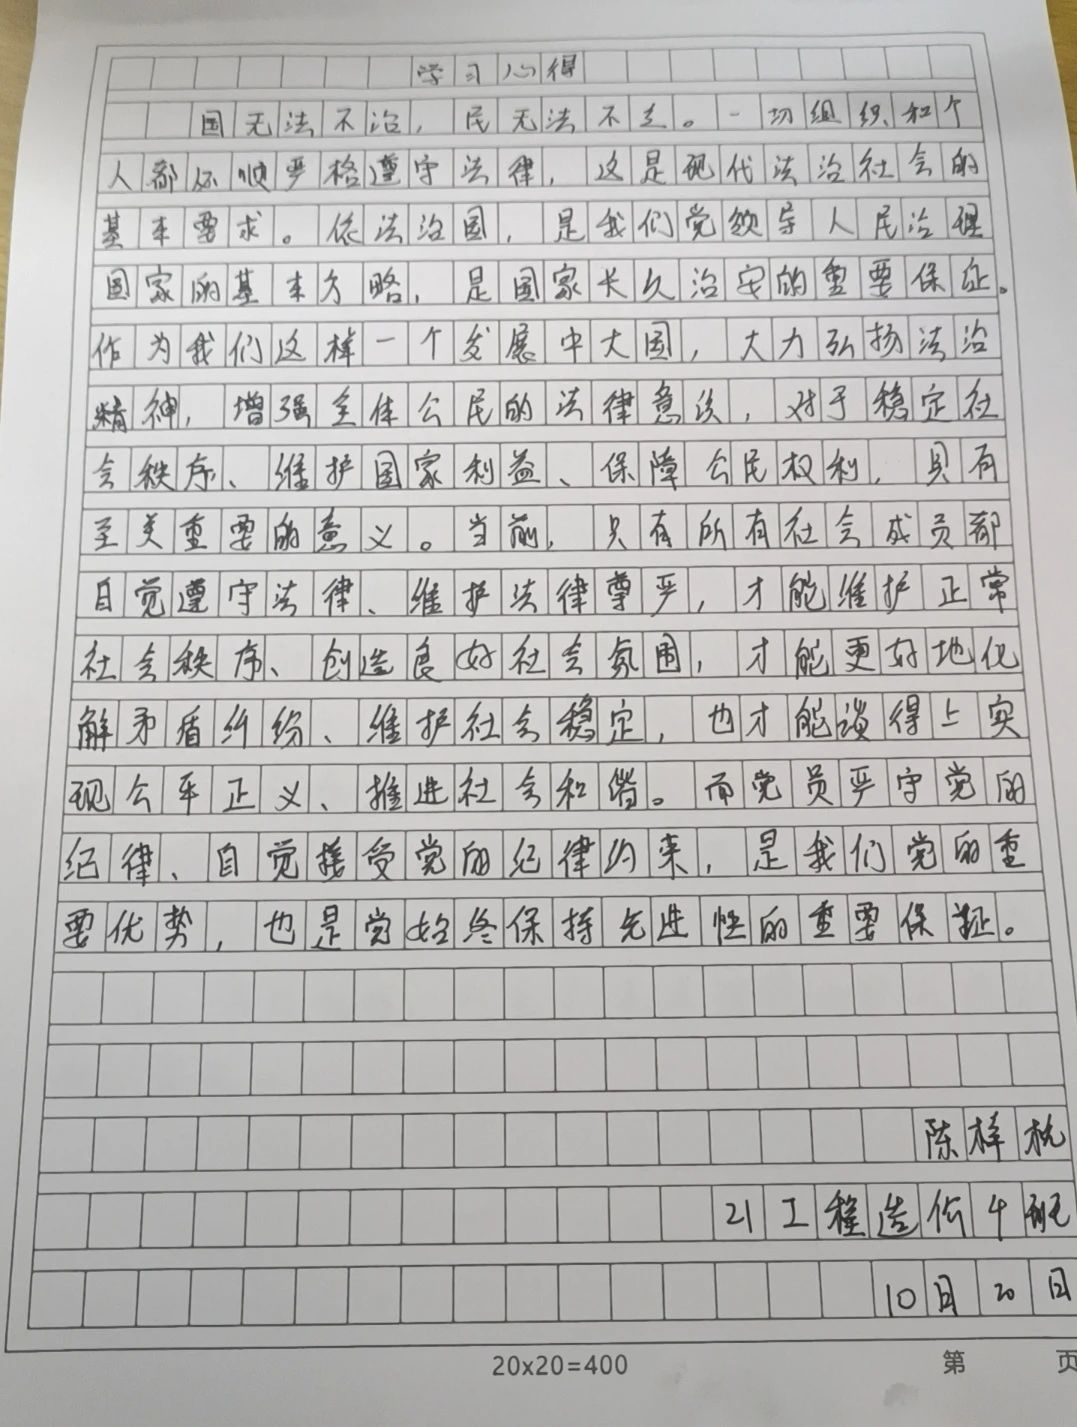 学习心得
国无法不治，民无法不立。一切组织和个
人都必须严格遵守法律，这是现代法治社会的
基本要求。依法治国，是我们党领导人民治理
国家的基本方略，是国家长久治安的重要保证。
作为我们这样一个发展中大国，大力弘扬法治
精神，增强全体公民的法律意识，对于稳定社
会秩序、维护国家利益、保障公民权利，具有
至关重要的意义。当前，只有所有社会成员都
自觉遵守法律、维护法律尊严，才能维护正常
社会秩序、创造良好社会氛围，才能更好地化
解矛盾纠纷、维护社会稳定，也才能谈得上实
现公平正义、推进社会和谐。而党员严守党的
纪律、自觉接受党的纪律约束，是我们党的重
要优势，也是党始终保持先进性的重要保证。
陈梓杭
21工程造价4班
10月20日
20x20=400 第 页